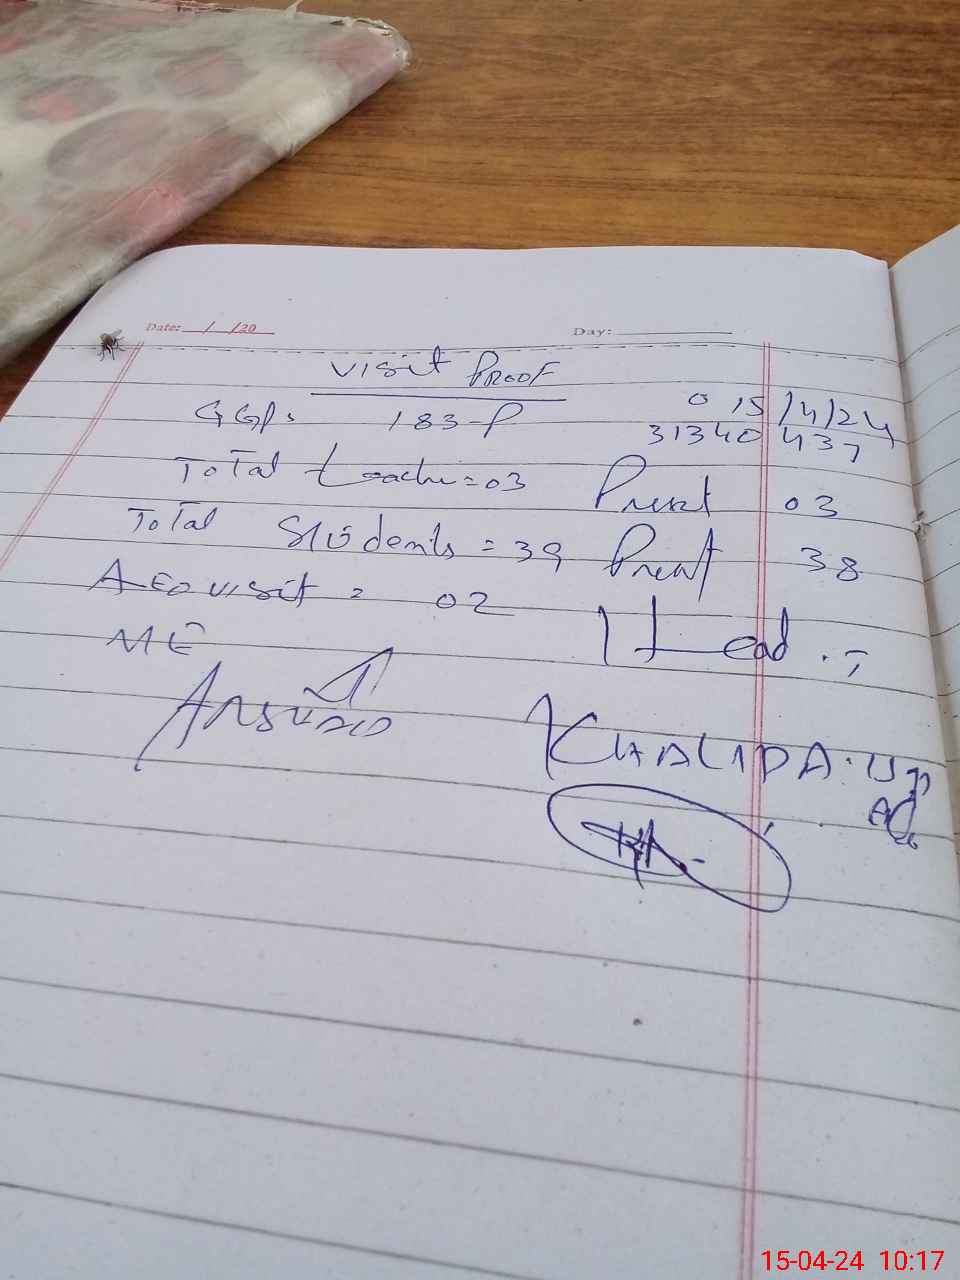 Date: / /20 Day:
Visit Proof
GGPS 183-P 0 15/4/24
31340437
Total teache = 03 Present 03
Total Students = 39 Present 38
AEO visit = 02 Head .
ME
Arshad KHALIDA.
15-04-24 10:17